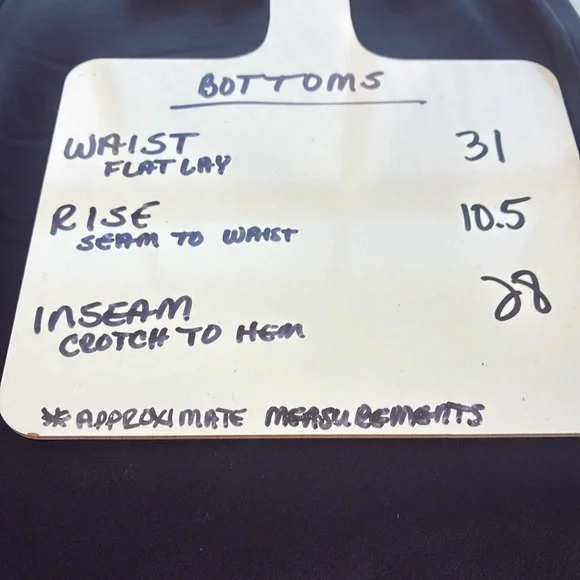 BOTTOMS
WAIST 31
FLAT LAY
RISE 10.5
SEAM TO WAIST
INSEAM 28
CROTCH TO HEM
*APPROXIMATE MEASUREMENTS